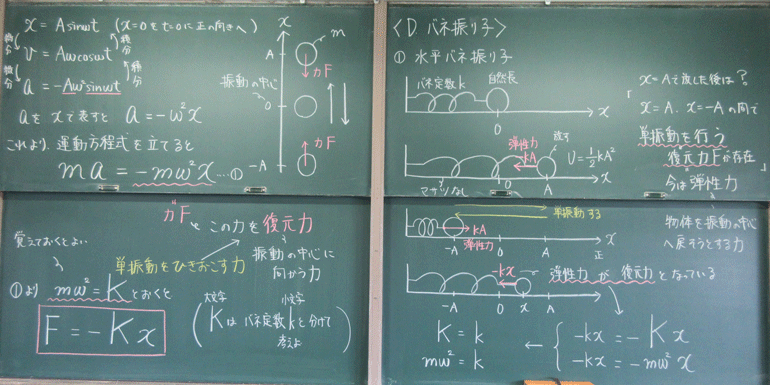 x = Asinωt (x=0をt=0に正の向きへ)
微分 積分
v = Aωcosωt
微分 積分
a = -Aω²sinωt
aをxで表すと a = -ω²x
これより、運動方程式を立てると
ma = -mω²x …①
x
A
m
力F
振動の中心
0
力F
-A
力F ← この力を復元力
覚えておくとよい
単振動をひきおこす力
振動の中心に
向かう力
①より mω² = K とおくと
F = -Kx
大文字 小文字
(Kは バネ定数kと分けて
考えよ)
〈D. バネ振り子〉
① 水平バネ振り子
バネ定数k 自然長
0 x
弾性力
kA
放す
U=½kA²
マサツなし
0 A x
x=Aで放した後は?
「x=A、x=-Aの間で
単振動を行う
復元力Fが存在」
今は弾性力
単振動する
kA
弾性力
-A 0 A 正 x
物体を振動の中心
へ戻そうとする力
-kx
弾性力が復元力となっている
-A 0 x A
K = k
mω² = k
←
{ -kx = -Kx
-kx = -mω²x